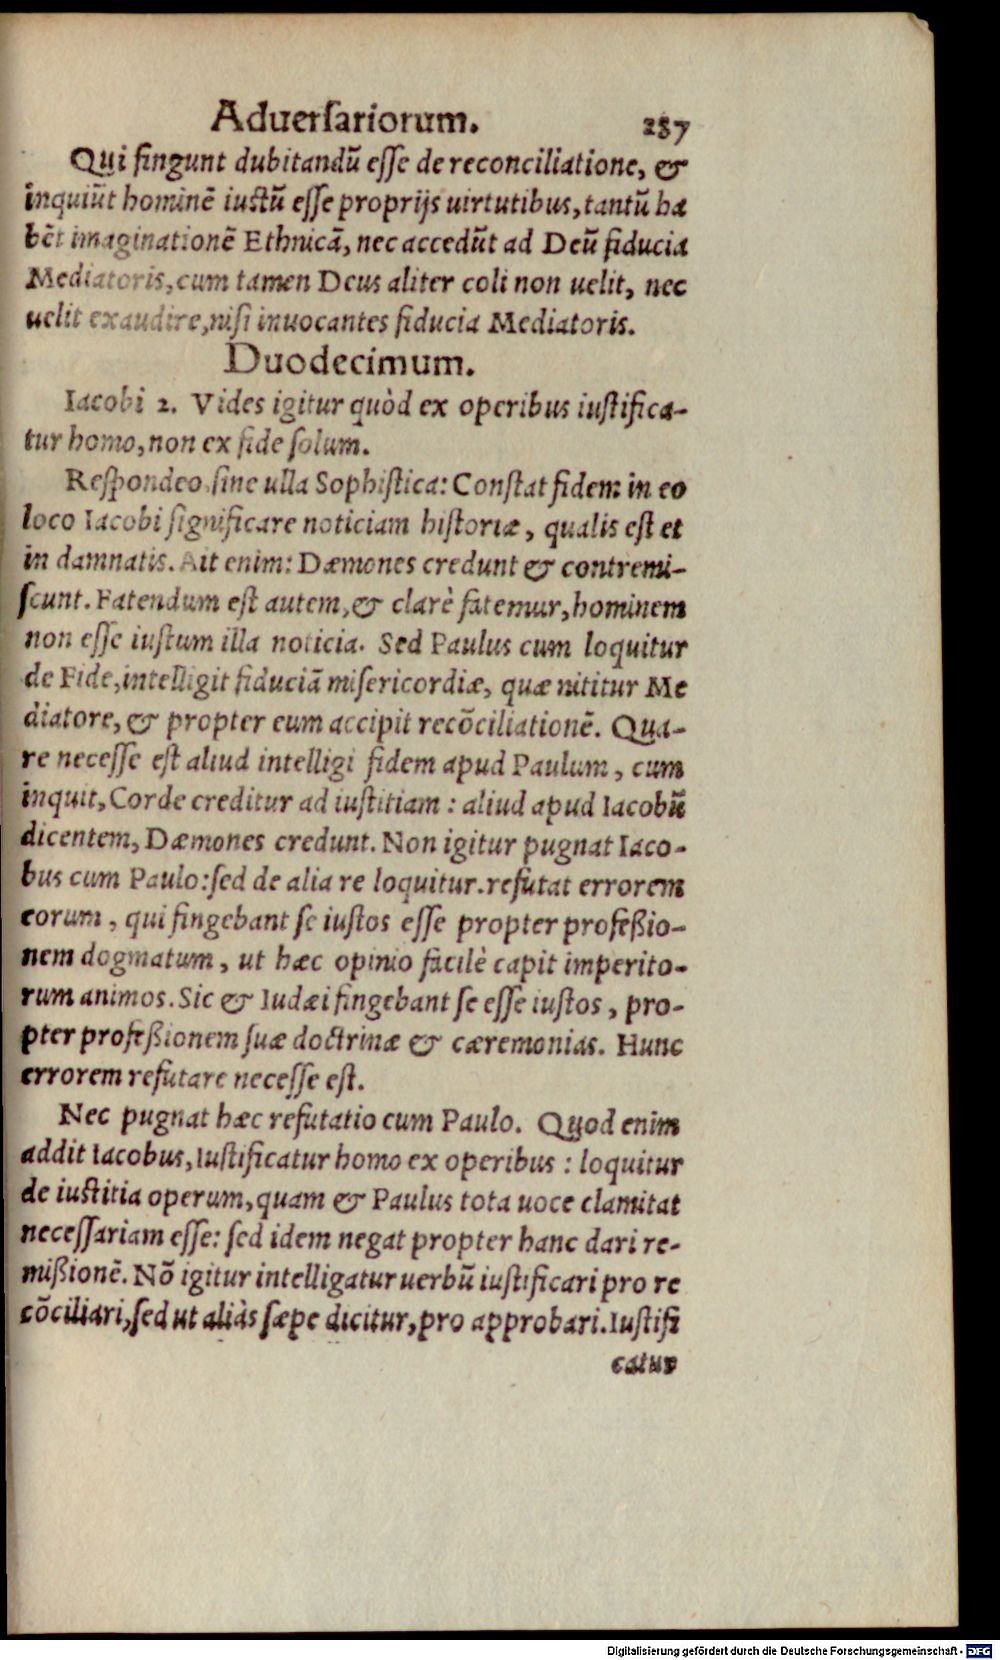 Aduerſariorum. 287
Qui fingunt dubitandū eſſe de reconciliatione, &
inquiūt hominē iuſtū eſſe proprijs uirtutibus, tantū ha
bēt imaginationē Ethnicā, nec accedūt ad Deū fiducia
Mediatoris, cum tamen Deus aliter coli non uelit, nec
uelit exaudire, niſi inuocantes fiducia Mediatoris.
Duodecimum.
Iacobi 2. Vides igitur quòd ex operibus iuſtifica-
tur homo, non ex fide ſolum.
Reſpondeo ſine ulla Sophiſtica: Conſtat fidem in eo
loco Iacobi ſignificare noticiam hiſtoriæ, qualis eſt et
in damnatis. Ait enim: Dæmones credunt & contremi-
ſcunt. Fatendum eſt autem, & clarè fatemur, hominem
non eſſe iuſtum illa noticia. Sed Paulus cum loquitur
de Fide, intelligit fiduciā miſericordiæ, quæ nititur Me
diatore, & propter eum accipit recōciliationē. Qua-
re neceſſe eſt aliud intelligi fidem apud Paulum, cum
inquit, Corde creditur ad iuſtitiam: aliud apud Iacobū
dicentem, Dæmones credunt. Non igitur pugnat Iaco-
bus cum Paulo: ſed de alia re loquitur. refutat errorem
eorum, qui fingebant ſe iuſtos eſſe propter profeßio-
nem dogmatum, ut hæc opinio facilè capit imperito-
rum animos. Sic & Iudæi fingebant ſe eſſe iuſtos, pro-
pter profeßionem ſuæ doctrinæ & cæremonias. Hunc
errorem refutare neceſſe eſt.
Nec pugnat hæc refutatio cum Paulo. Quod enim
addit Iacobus, Iuſtificatur homo ex operibus: loquitur
de iuſtitia operum, quam & Paulus tota uoce clamitat
neceſſariam eſſe: ſed idem negat propter hanc dari re-
mißionē. Nō igitur intelligatur uerbū iuſtificari pro re
cōciliari, ſed ut aliàs ſæpe dicitur, pro approbari. Iuſtifi
catur
Digitalisierung gefördert durch die Deutsche Forschungsgemeinschaft - DFG